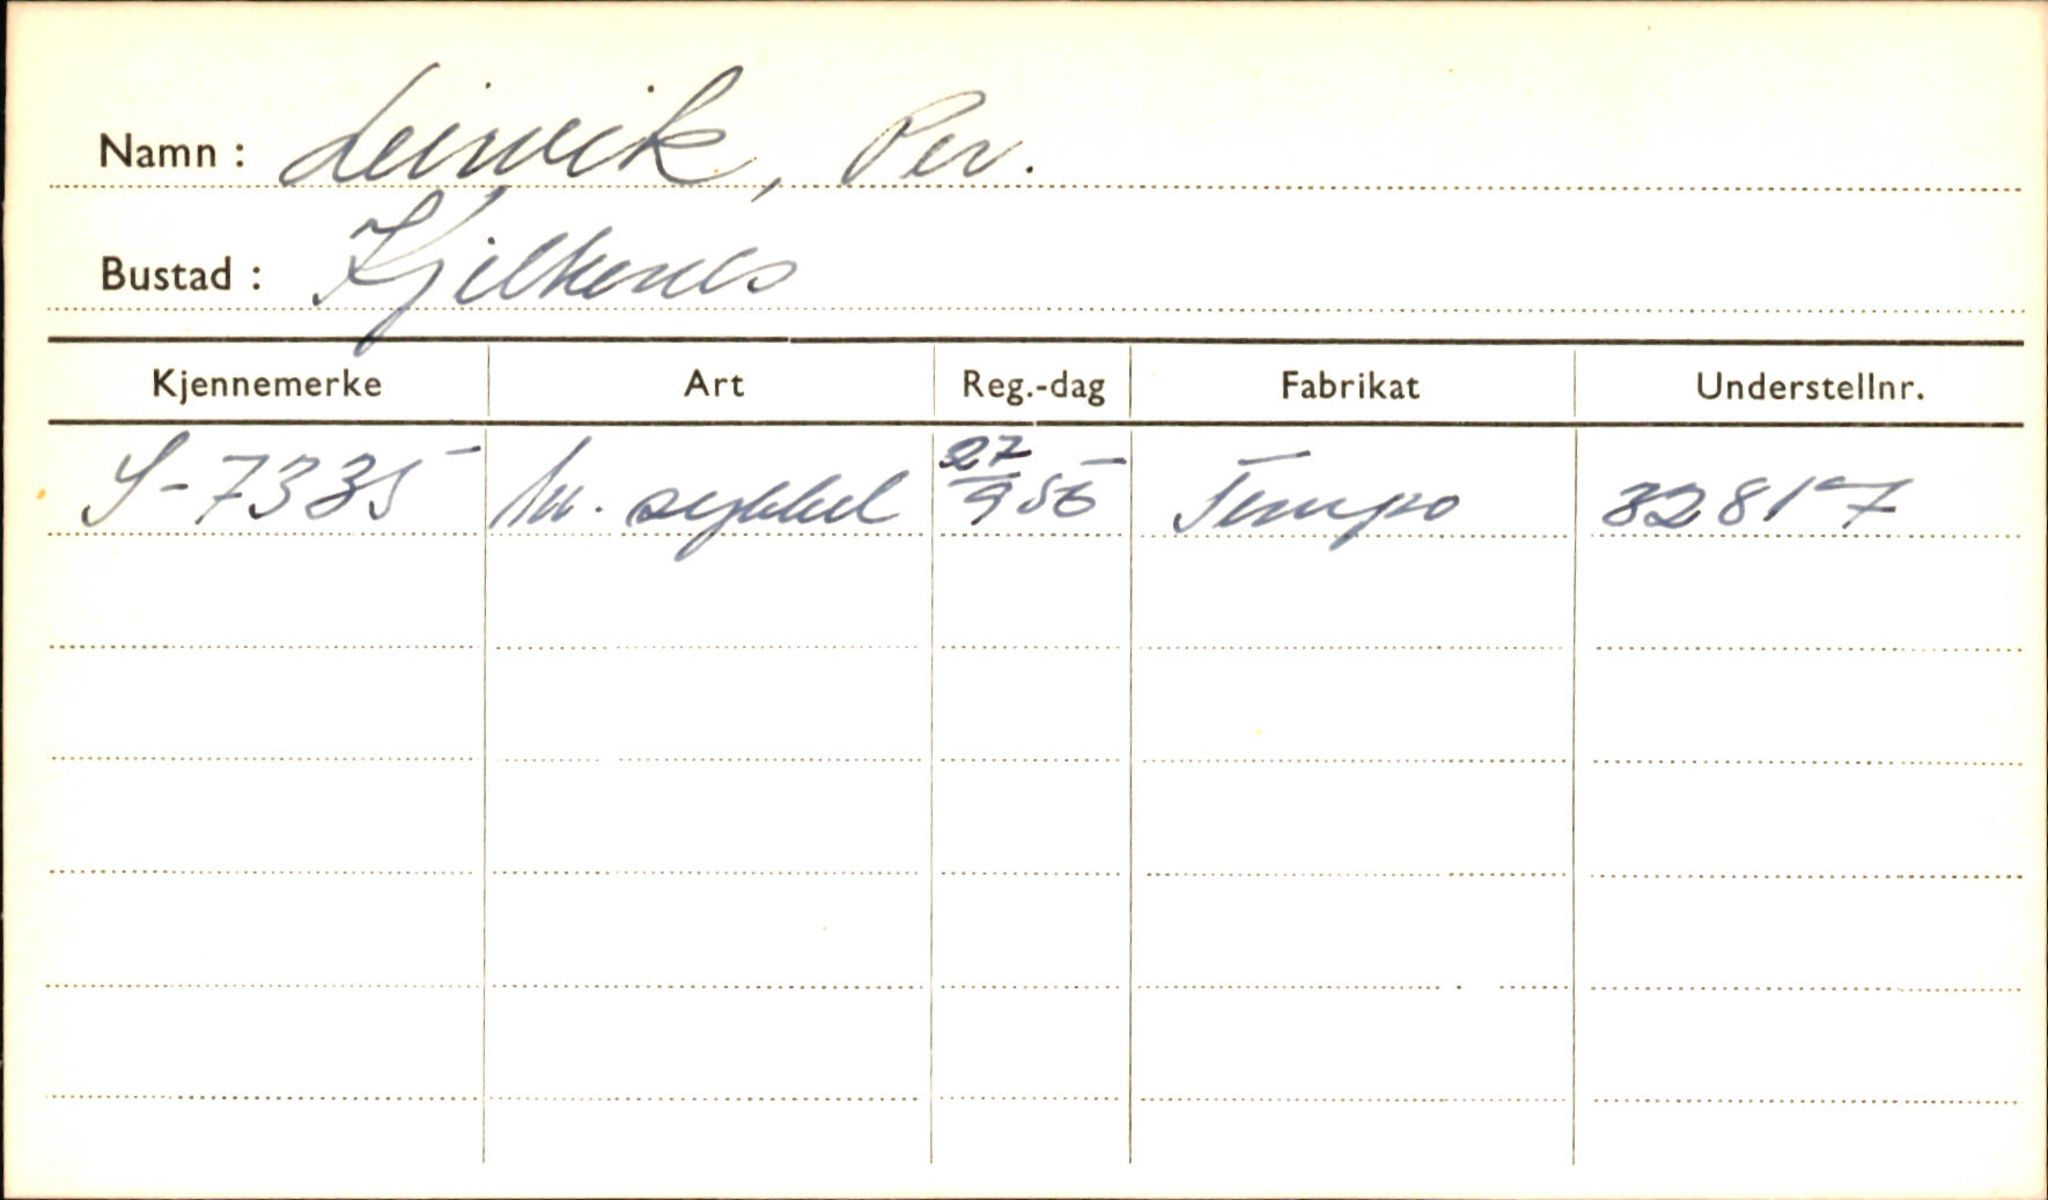 Namn : Leirvik, Per.
Bustad : Kjelkenes
Kjennemerke Art Reg.-dag Fabrikat Understellnr.
S-7335 M. sykkel 27/9 55 Tempo 32817